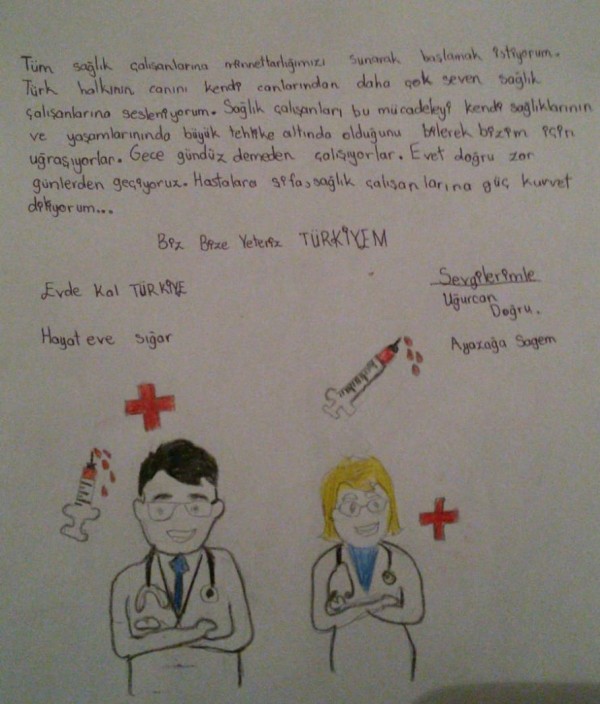 Tüm sağlık çalışanlarına minnetlarlığımızı sunarak başlamak istiyorum.
Türk halkının canını kendi canlarından daha çok seven sağlık
çalışanlarına sesleniyorum. Sağlık çalışanları bu mücadeleyi kendi sağlıklarının
ve yaşamlarınında büyük tehlike altında olduğunu bilerek bizim için
uğraşıyorlar. Gece gündüz demeden çalışıyorlar. Evet doğru zor
günlerden geçiyoruz. Hastalara şifa, sağlık çalışanlarına güç kuvvet
diliyorum...
Biz Bize Yeteriz TÜRKİYEM
Evde Kal TÜRKİYE
Hayat eve sığar
Sevgilerimle
Uğurcan
Doğru.
Ayazağa Sagem